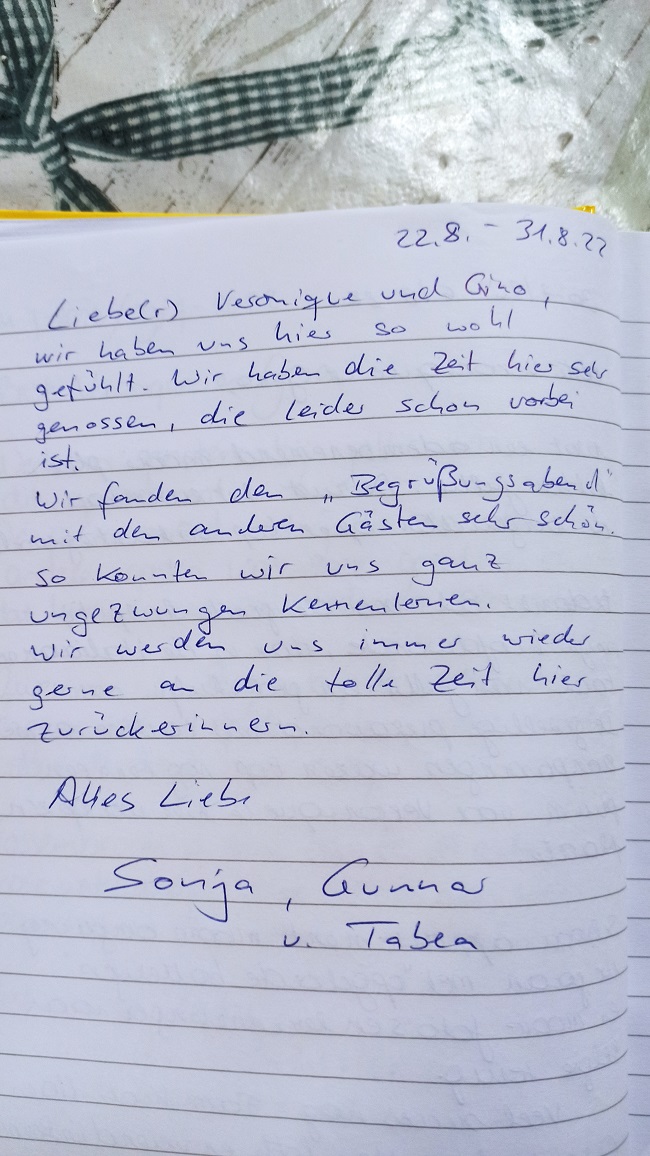 22.8. - 31.8.22
Liebe(r) Veronique und Gino,
wir haben uns hier so wohl
gefühlt. Wir haben die Zeit hier sehr
genossen, die leider schon vorbei
ist.
Wir fanden den „Begrüßungsabend"
mit den anderen Gästen sehr schön.
So konnten wir uns ganz
ungezwungen kennenlernen.
Wir werden uns immer wieder
gerne an die tolle Zeit hier
zurückerinnern.
Alles Liebe
Sonja, Gunnar
u. Tabea